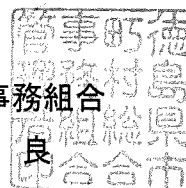 事務組合
良
徳島県市
町村総合
事務組合
管理者印